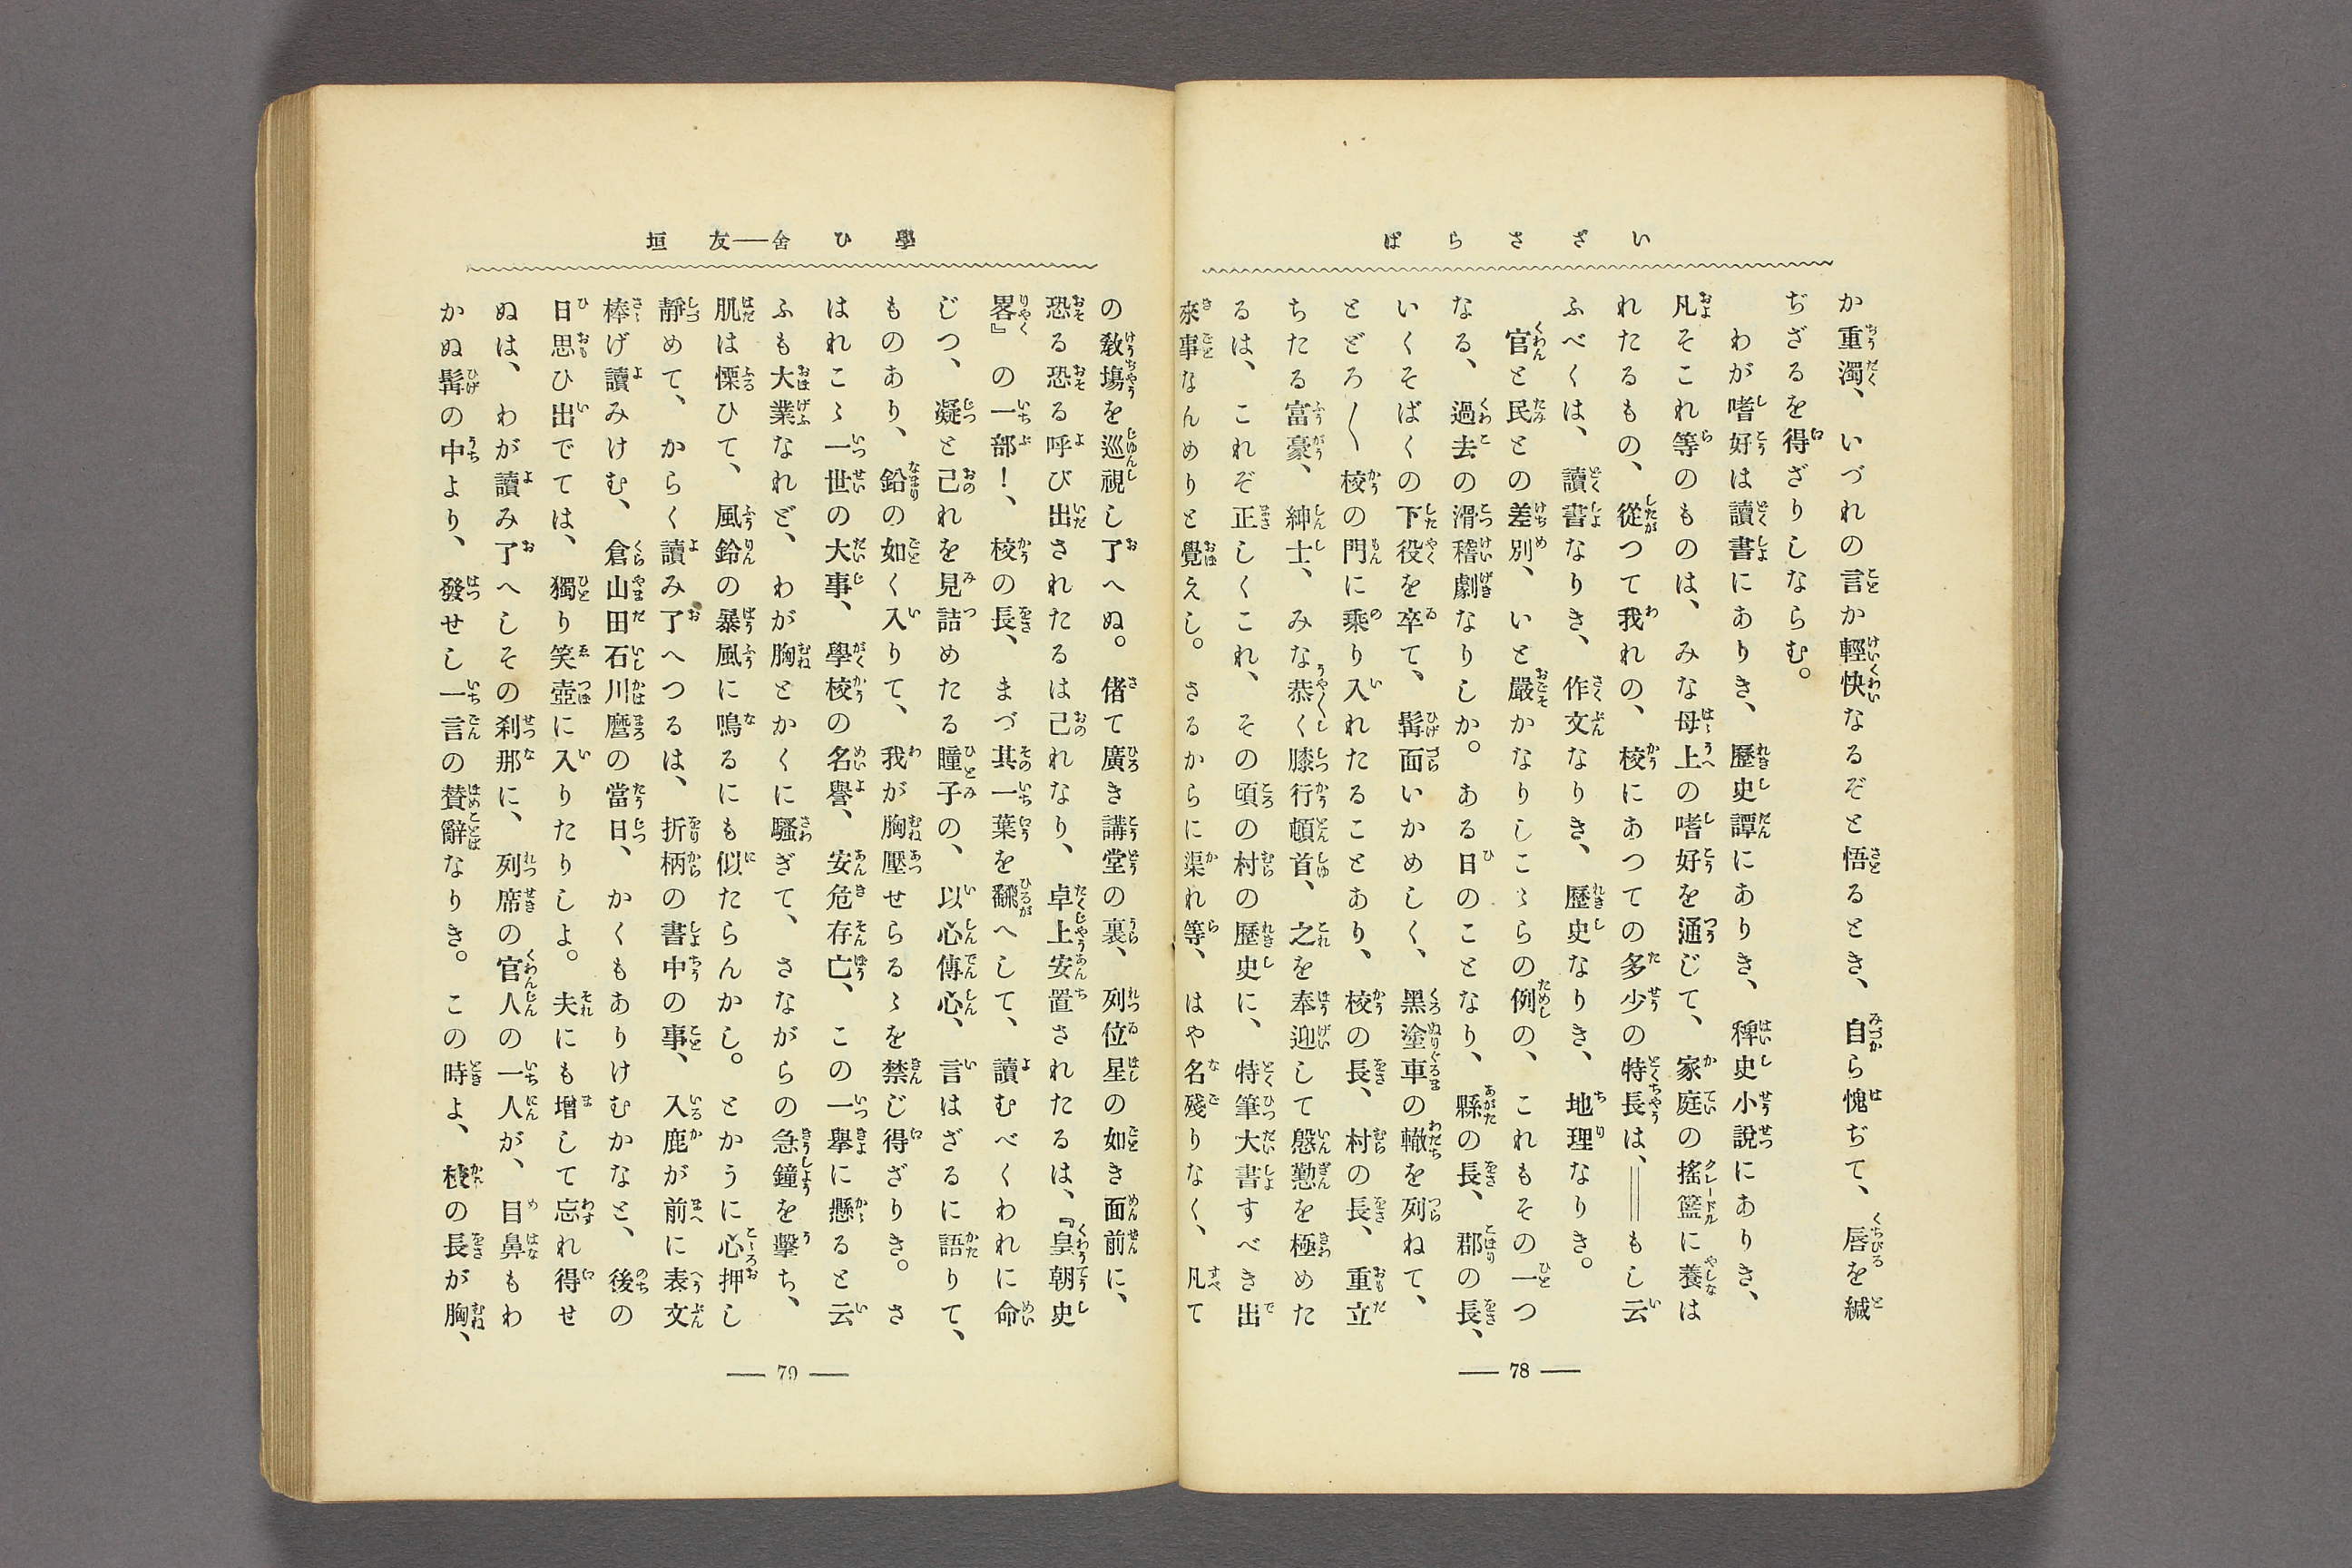 いざさらば
か重濁、いづれの言か輕快なるぞと悟るとき、自ら愧ぢて、唇を緘
ぢざるを得ざりしならむ。
わが嗜好は讀書にありき、歷史譚にありき、稗史小說にありき、
凡そこれ等のものは、みな母上の嗜好を通じて、家庭の搖籃に養は
れたるもの、從つて我れの、校にあつての多少の特長は、――もし云
ふべくは、讀書なりき、作文なりき、歷史なりき、地理なりき。
官と民との差別、いと嚴かなりしこゝらの例の、これもその一つ
なる、過去の滑稽劇なりしか。ある日のことなり、縣の長、郡の長、
いくそばくの下役を卒て、髯面いかめしく、黑塗車の轍を列ねて、
とどろ〳〵校の門に乘り入れたることあり、校の長、村の長、重立
ちたる富豪、紳士、みな恭く膝行頓首、之を奉迎して慇懃を極めた
るは、これぞ正しくこれ、その頃の村の歷史に、特筆大書すべき出
來事なんめりと覺えし。さるからに渠れ等、はや名殘りなく、凡て
― 78 ―
學び舍―友垣
の敎塲を巡視し了へぬ。偖て廣き講堂の裏、列位星の如き面前に、
恐る恐る呼び出されたるは己れなり、卓上安置されたるは、『皇朝史
畧』の一部！、校の長、まづ其一葉を飜へして、讀むべくわれに命
じつ、凝と己れを見詰めたる瞳子の、以心傳心、言はざるに語りて、
ものあり、鉛の如く入りて、我が胸壓せらるゝを禁じ得ざりき。さ
はれこゝ一世の大事、學校の名譽、安危存亡、この一擧に懸ると云
ふも大業なれど、わが胸とかくに騷ぎて、さながらの急鐘を擊ち、
肌は慄ひて、風鈴の暴風に鳴るにも似たらんかし。とかうに心押し
靜めて、からく讀み了へつるは、折柄の書中の事、入鹿が前に表文
棒げ讀みけむ、倉山田石川麿の當日、かくもありけむかなと、後の
日思ひ出でては、獨り笑壺に入りたりしよ。夫にも增して忘れ得せ
ぬは、わが讀み了へしその刹那に、列席の官人の一人が、目鼻もわ
かぬ髯の中より、發せし一言の賛辭なりき。この時よ、校の長が胸、
― 79 ―